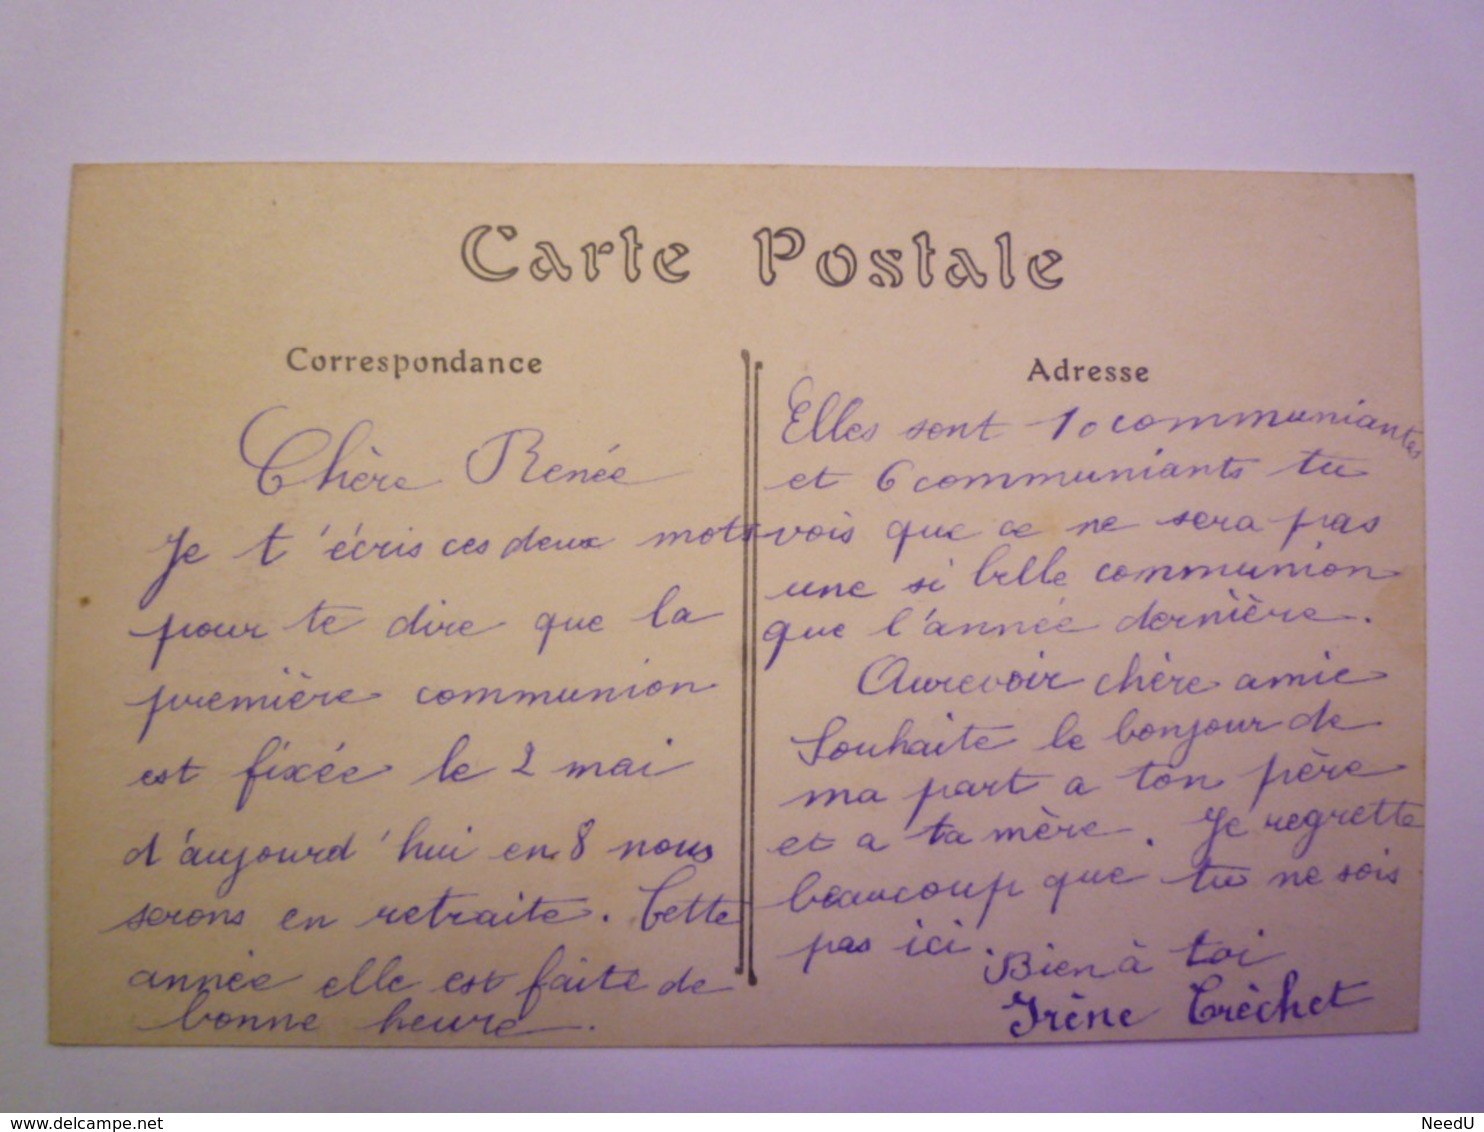 Carte Postale
Correspondance
Chère Renée
Je t'écris ces deux mots
pour te dire que la
première communion
est fixée le 2 mai
d'aujourd'hui en 8 nous
serons en retraite. Cette
année elle est faite de
bonne heure.
Adresse
Elles sont 10 communiantes
et 6 communiants tu
vois que ce ne sera pas
une si belle communion
que l'année dernière.
Aurevoir chère amie
Souhaite le bonjour de
ma part a ton père
et a ta mère. Je regrette
beaucoup que tu ne sois
pas ici.
Bien à toi
Irène Créchet
www.delcampe.net
NeedU